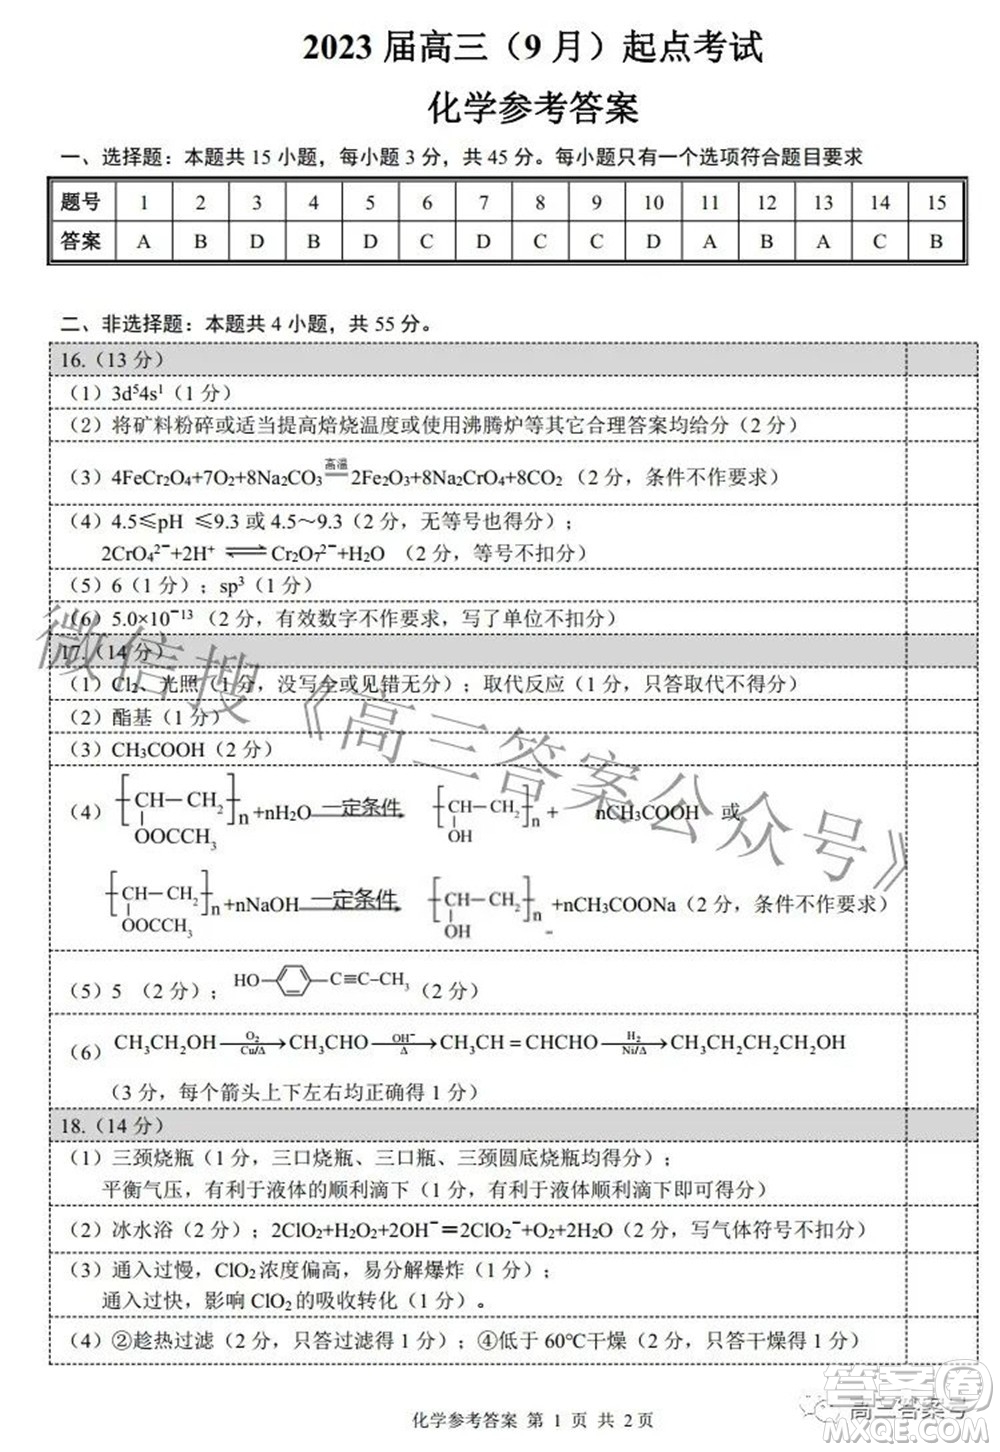 2023 届高三（9 月）起点考试
化学参考答案
一、选择题：本题共 15 小题，每小题 3 分，共 45 分。每小题只有一个选项符合题目要求
题号 1 2 3 4 5 6 7 8 9 10 11 12 13 14 15
答案 A B D B D C D C C D A B A C B
二、非选择题：本题共 4 小题，共 55 分。
16.（13 分）
（1）3d⁵4s¹（1 分）
（2）将矿料粉碎或适当提高焙烧温度或使用沸腾炉等其它合理答案均给分（2 分）
（3）4FeCr₂O₄+7O₂+8Na₂CO₃ 高温 2Fe₂O₃+8Na₂CrO₄+8CO₂（2 分，条件不作要求）
（4）4.5≤pH ≤9.3 或 4.5～9.3（2 分，无等号也得分）；
2CrO₄²⁻+2H⁺ ⇌ Cr₂O₇²⁻+H₂O （2 分，等号不扣分）
（5）6（1 分）；sp³（1 分）
（6）5.0×10⁻¹³（2 分，有效数字不作要求，写了单位不扣分）
17.（14 分）
（1）Cl₂、光照（1 分，没写全或见错无分）；取代反应（1 分，只答取代不得分）
（2）酯基（1 分）
（3）CH₃COOH（2 分）
（4）[CH－CH₂]n OOCCH₃ +nH₂O 一定条件 [CH－CH₂]n OH + nCH₃COOH 或
[CH－CH₂]n OOCCH₃ +nNaOH 一定条件 [CH－CH₂]n OH +nCH₃COONa（2 分，条件不作要求）
（5）5 （2 分）；HO－ －C≡C－CH₃（2 分）
（6）CH₃CH₂OH O₂ Cu/Δ →CH₃CHO OH⁻ Δ →CH₃CH＝CHCHO H₂ Ni/Δ →CH₃CH₂CH₂CH₂OH
（3 分，每个箭头上下左右均正确得 1 分）
18.（14 分）
（1）三颈烧瓶（1 分，三口烧瓶、三口瓶、三颈圆底烧瓶均得分）；
平衡气压，有利于液体的顺利滴下（1 分，有利于液体顺利滴下即可得分）
（2）冰水浴（2 分）；2ClO₂+H₂O₂+2OH⁻＝2ClO₂⁻+O₂+2H₂O（2 分，写气体符号不扣分）
（3）通入过慢，ClO₂浓度偏高，易分解爆炸（1 分）；
通入过快，影响 ClO₂ 的吸收转化（1 分）。
（4）②趁热过滤（2 分，只答过滤得 1 分）；④低于 60℃干燥（2 分，只答干燥得 1 分）
化学参考答案 第 1 页 共 2 页
微信搜《高三答案公众号》
高三答案号
答案圈
MXQE.COM